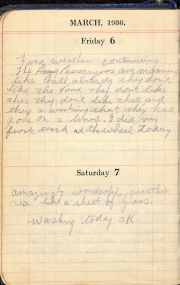 MARCH, 1936.
Friday 6
Fine weather continuing
The Passengers are moaning
like hell already they dont
like the food they dont like
this they dont like that and
they a working they had
gone on a I did my
first trick at the wheel today
Saturday 7
amazingly wonderful weather
sea like a sheet of glass.
Washing today OK.